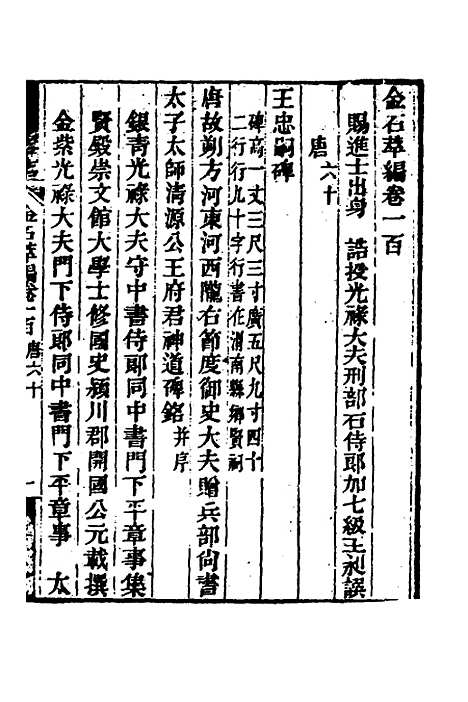 金石萃編卷一百
賜進士出身　誥授光祿大夫刑部右侍郎加七級王昶譔
唐六十
王忠嗣碑
碑高一丈三尺三寸廣五尺九寸四十
二行行九十字行書在渭南縣鄉賢祠
唐故朔方河東河西隴右節度御史大夫贈兵部尙書
太子太師清源公王府君神道碑銘并序
銀青光祿大夫守中書侍郎同中書門下平章事集
賢殿崇文館大學士修國史潁川郡開國公元載撰
金紫光祿大夫門下侍郎同中書門下平章事　太
金石萃編卷一百　唐六十
一